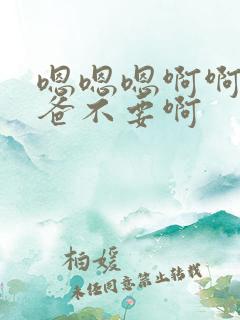 嗯嗯嗯啊啊
爸不要啊
柏媛
未经同意禁止转载